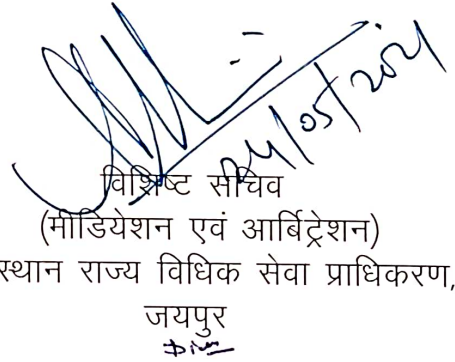 24/05/2021
विशिष्ट सचिव
(मीडियेशन एवं आर्बिट्रेशन)
स्थान राज्य विधिक सेवा प्राधिकरण,
जयपुर